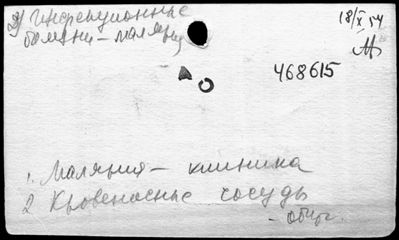 2) Инфекционные
болезни - малярия
18/X 54
468615
1. Малярия - клиника
2 Кровеносные сосуды